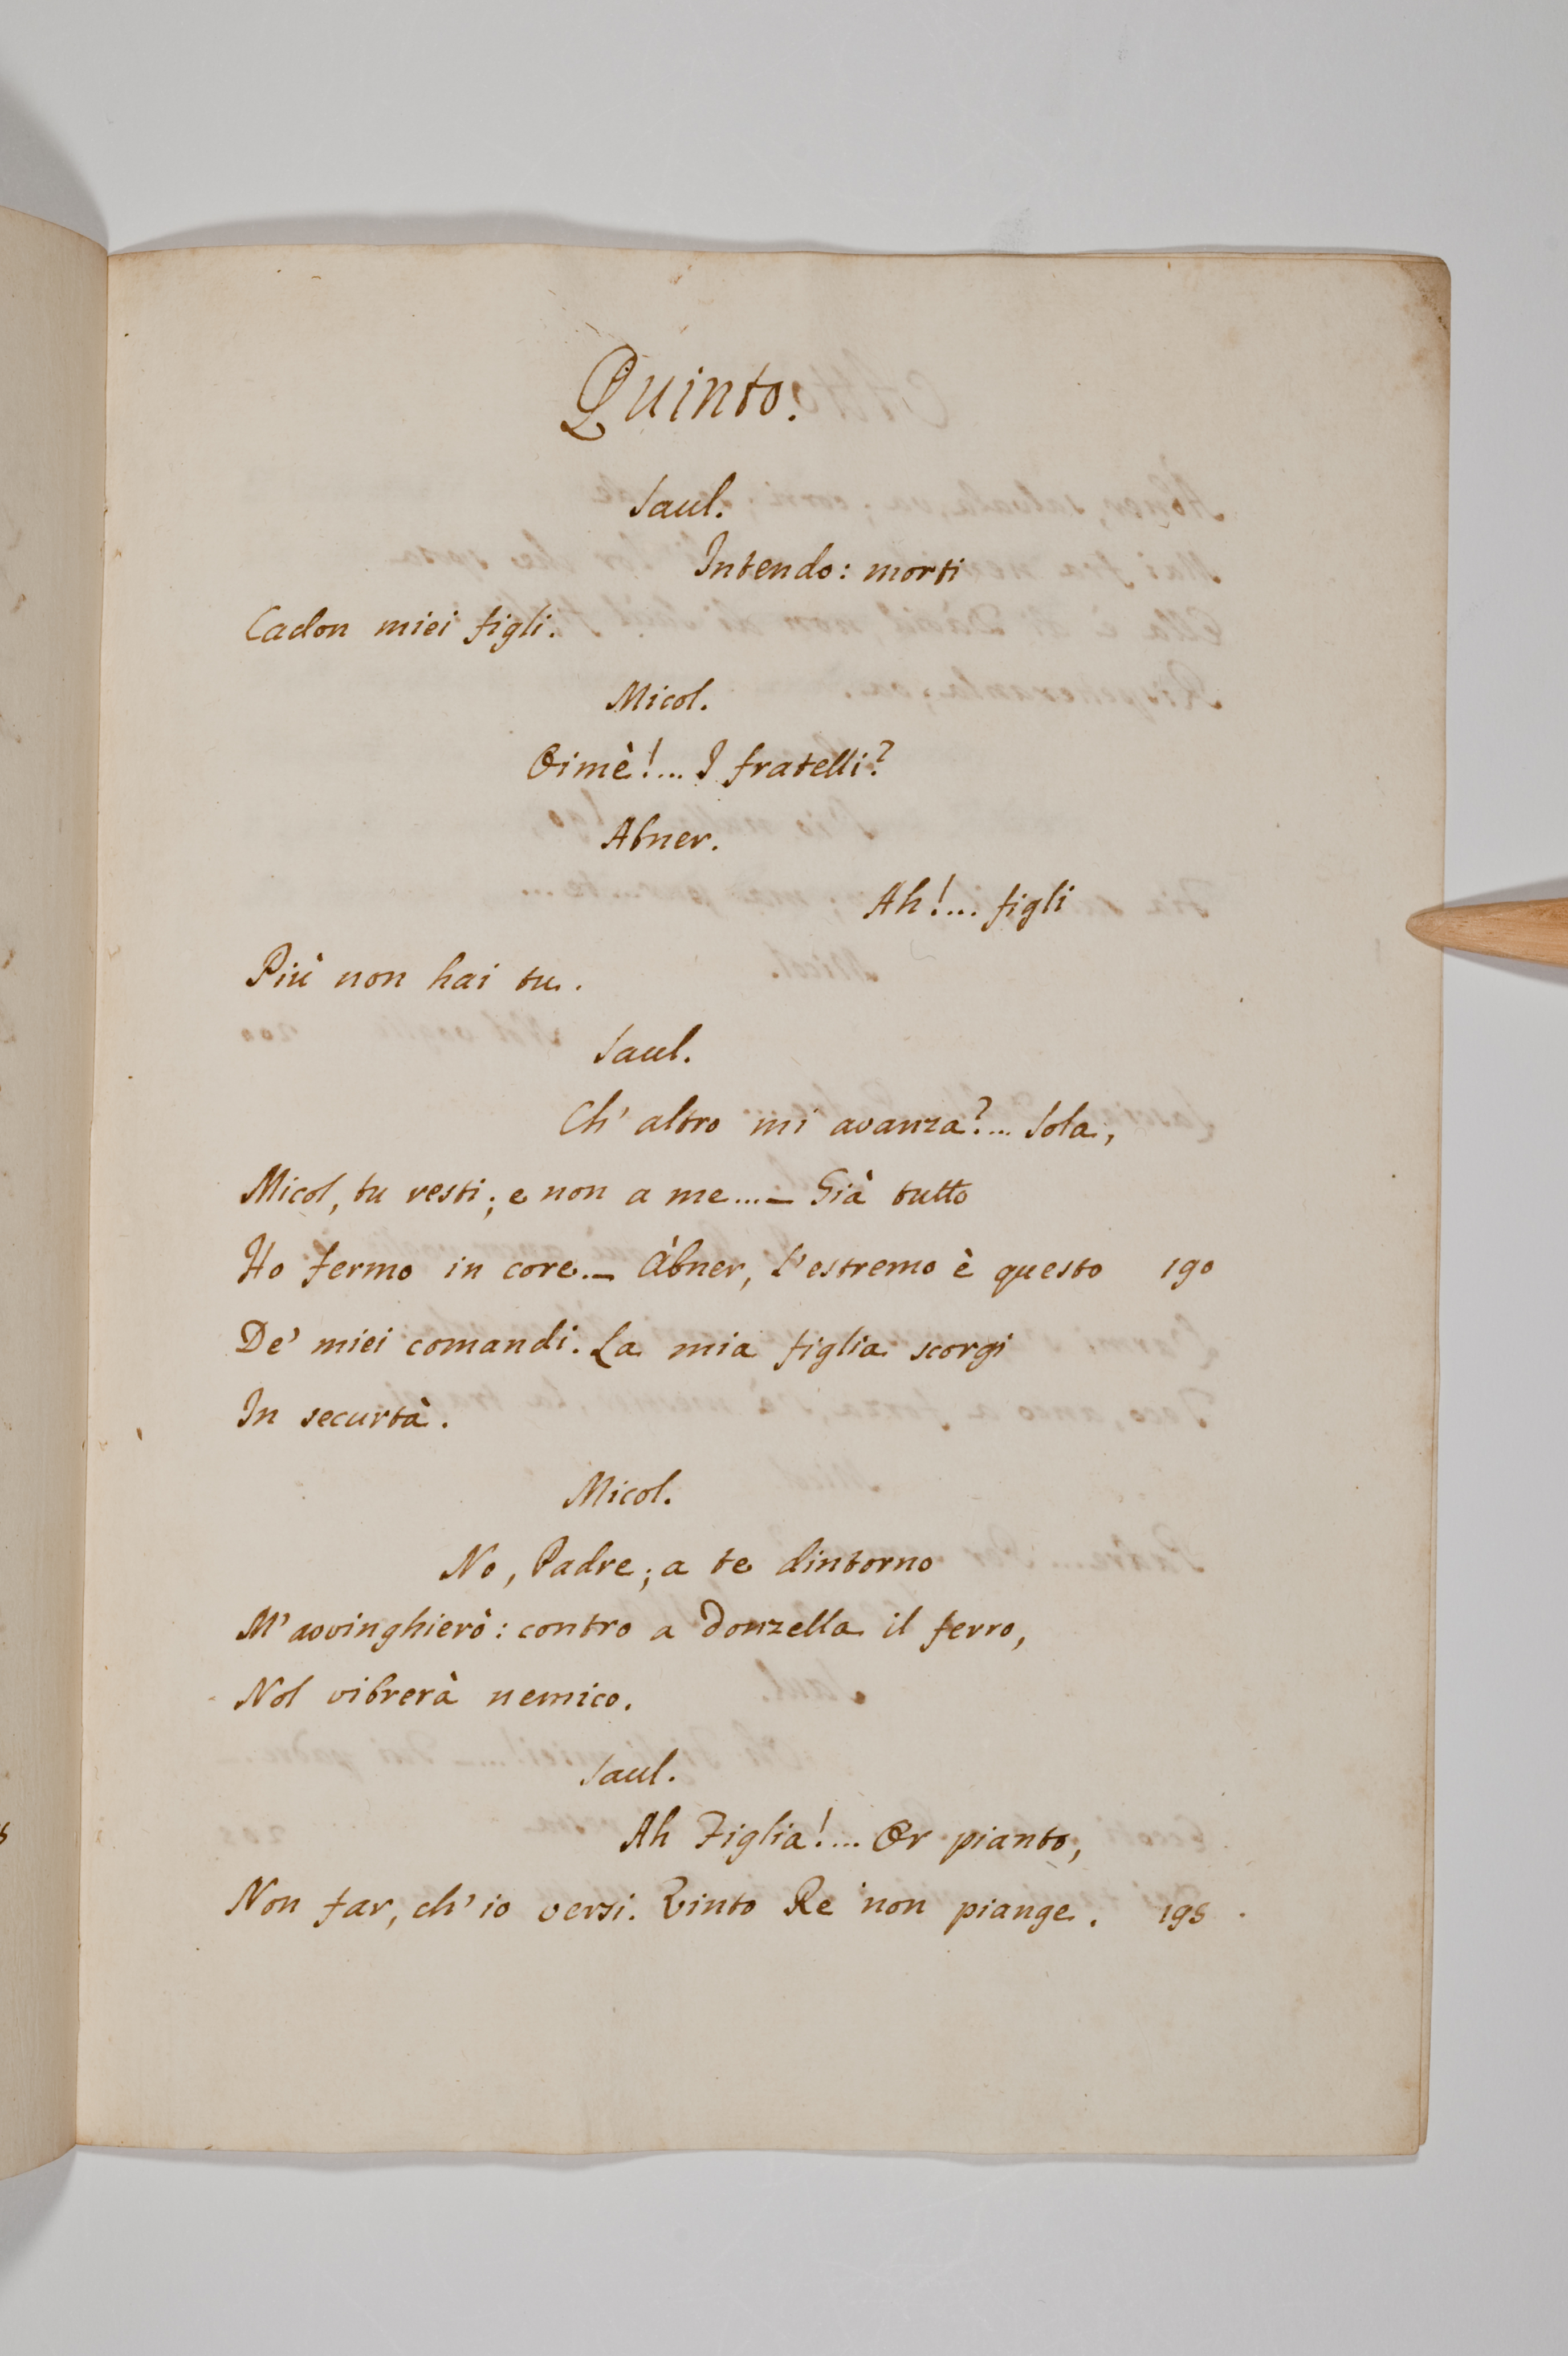 Quinto.
Saul.
Intendo: morti
Cadon miei figli.
Micol.
Oimè!... I fratelli?
Abner.
Ah!... figli
Più non hai tu.
Saul.
Ch' altro mi avanza?... Sola,
Micol, tu resti; e non a me...._ Già tutto
Ho fermo in core._ Àbner, l'estremo è questo 190
De' miei comandi. La mia figlia scorgi
In securtà.
Micol.
No, Padre; a te dintorno
M'avvinghierò: contro a donzella il ferro,
Nol vibrerà nemico.
Saul.
Ah Figlia!... Or pianto,
Non far, ch'io versi. Vinto Re non piange. 195